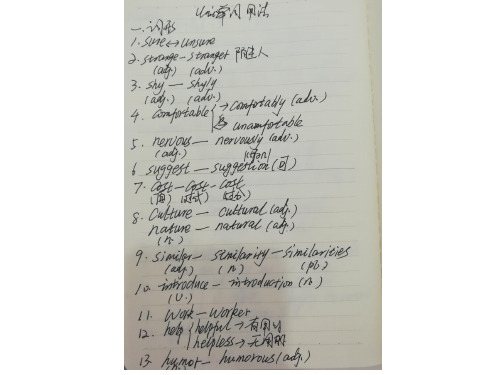 词用法
一.词形
1. sure ↔ unsure
2. strange - stranger 陌生人
(adj.) (adv.)
3. shy — shyly
(adj.) (adv.)
4. comfortable → comfortably (adv.)
unamfortable
5. nervous — nervously (adv.)
(adj.)
6 suggest — suggestion (可)
7. Cost - Cost - Cost
8. Culture — cultural (adj.)
nature — natural (adj.)
(n.)
9. similar — similarity — similarities
(adj.) (n.) (pl.)
10. introduce — introduction (n.)
(v.)
11. Work - Worker
12. help helpful → 有用的
helpless → 无用的
13. humor — humorous (adj.)